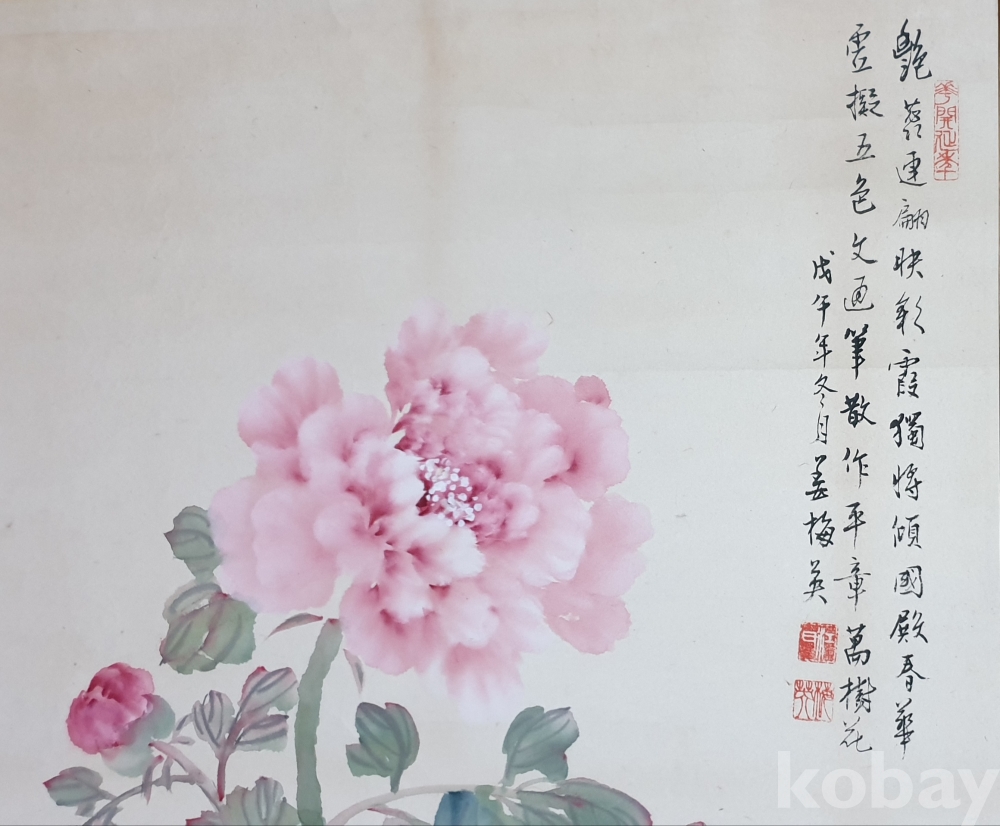 華開延年
艷蕊連翩映彩霞獨將傾國殿春華
虛擬五色文通筆散作平章萬樹花
戊午年冬月姜梅英
梅英
kobay